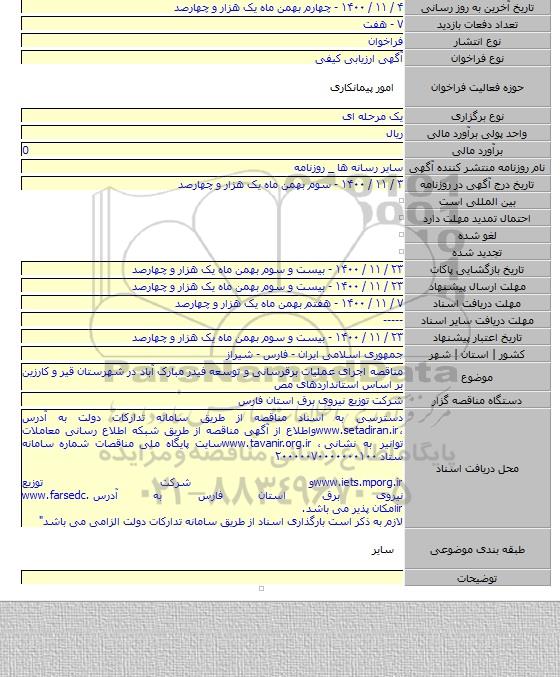 تاریخ آخرین به روز رسانی ۴ / ۱۱ / ۱۴۰۰ - چهارم بهمن ماه یک هزار و چهارصد
تعداد دفعات بازدید ۷ - هفت
نوع انتشار فراخوان
نوع فراخوان آگهی ارزیابی کیفی
حوزه فعالیت فراخوان امور پیمانکاری
نوع برگزاری یک مرحله ای
واحد پولی برآورد مالی ریال
برآورد مالی 0
نام روزنامه منتشر کننده آگهی سایر رسانه ها _ روزنامه
تاریخ درج آگهی در روزنامه ۳ / ۱۱ / ۱۴۰۰ - سوم بهمن ماه یک هزار و چهارصد
بین المللی است
احتمال تمدید مهلت دارد
لغو شده
تجدید شده
تاریخ بازگشایی پاکات ۲۳ / ۱۱ / ۱۴۰۰ - بیست و سوم بهمن ماه یک هزار و چهارصد
مهلت ارسال پیشنهاد ۲۳ / ۱۱ / ۱۴۰۰ - بیست و سوم بهمن ماه یک هزار و چهارصد
مهلت دریافت اسناد ۷ / ۱۱ / ۱۴۰۰ - هفتم بهمن ماه یک هزار و چهارصد
مهلت دریافت سایر اسناد -----
تاریخ اعتبار پیشنهاد ۲۳ / ۱۱ / ۱۴۰۰ - بیست و سوم بهمن ماه یک هزار و چهارصد
کشور | استان | شهر جمهوری اسلامی ایران - فارس - شیراز
موضوع مناقصه اجرای عملیات برقرسانی و توسعه فیدر مبارک آباد در شهرستان قیر و کارزین
بر اساس استانداردهای مص
دستگاه مناقصه گزار شرکت توزیع نیروی برق استان فارس
محل دریافت اسناد
دسترسی به اسناد مناقصه از طریق سامانه تدارکات دولت به آدرس
www.setadiran.ir،واطلاع از آگهی مناقصه از طریق شبکه اطلاع رسانی معاملات
توانیر به نشانی ، www.tavanir.org.irسایت پایگاه ملی مناقصات شماره سامانه
ستاد
www.iets.mporg.irو شرکت توزیع
نیروی برق استان فارس به آدرس www.farsedc.
irامکان پذیر می باشد.
لازم به ذکر است بارگذاری اسناد از طریق سامانه تدارکات دولت الزامی می باشد"
طبقه بندی موضوعی سایر
توضیحات
ParsNamadData
پایگاه اطلاع رسانی مناقصه و مزایده
۰۲۱-۸۸۳۴۹۶۷۰-۵